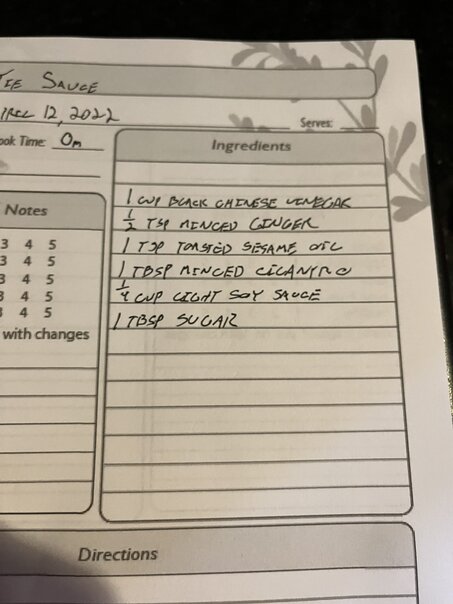 TIE SAUCE
12, 2022
Serves:
ook Time: 0m
Ingredients
1 CUP BLACK CHINESE VINEGAR
1/2 TSP MINCED GINGER
1 TSP TOASTED SESAME OIL
1 TBSP MINCED CILANTRO
1/4 CUP LIGHT SOY SAUCE
1 TBSP SUGAR
Notes
3 4 5
3 4 5
3 4 5
3 4 5
3 4 5
with changes
Directions